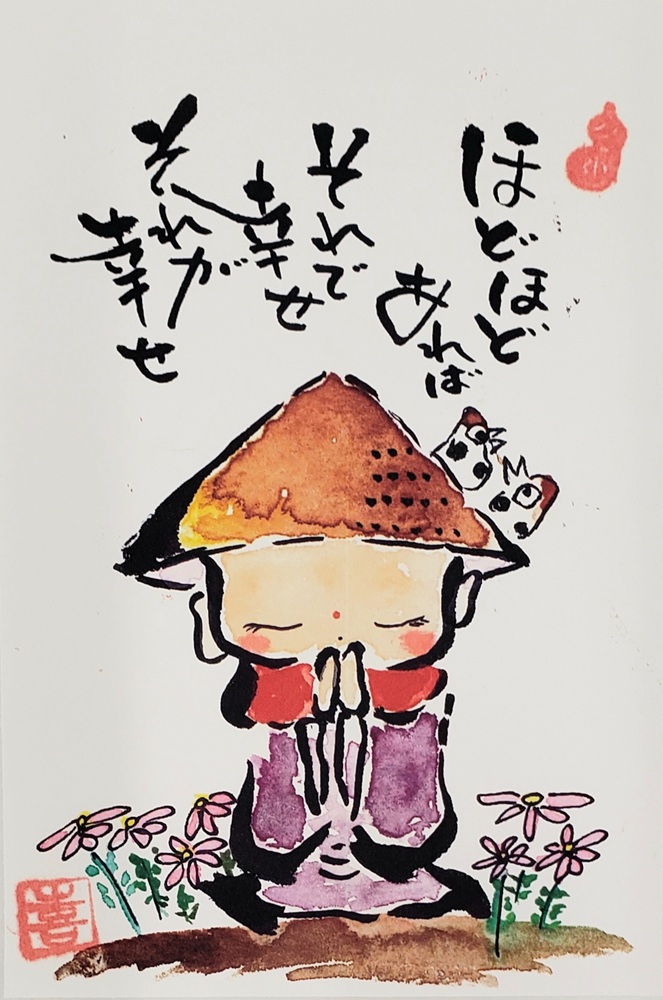 ほどほど
あれば
それで
幸せ
それが
幸せ